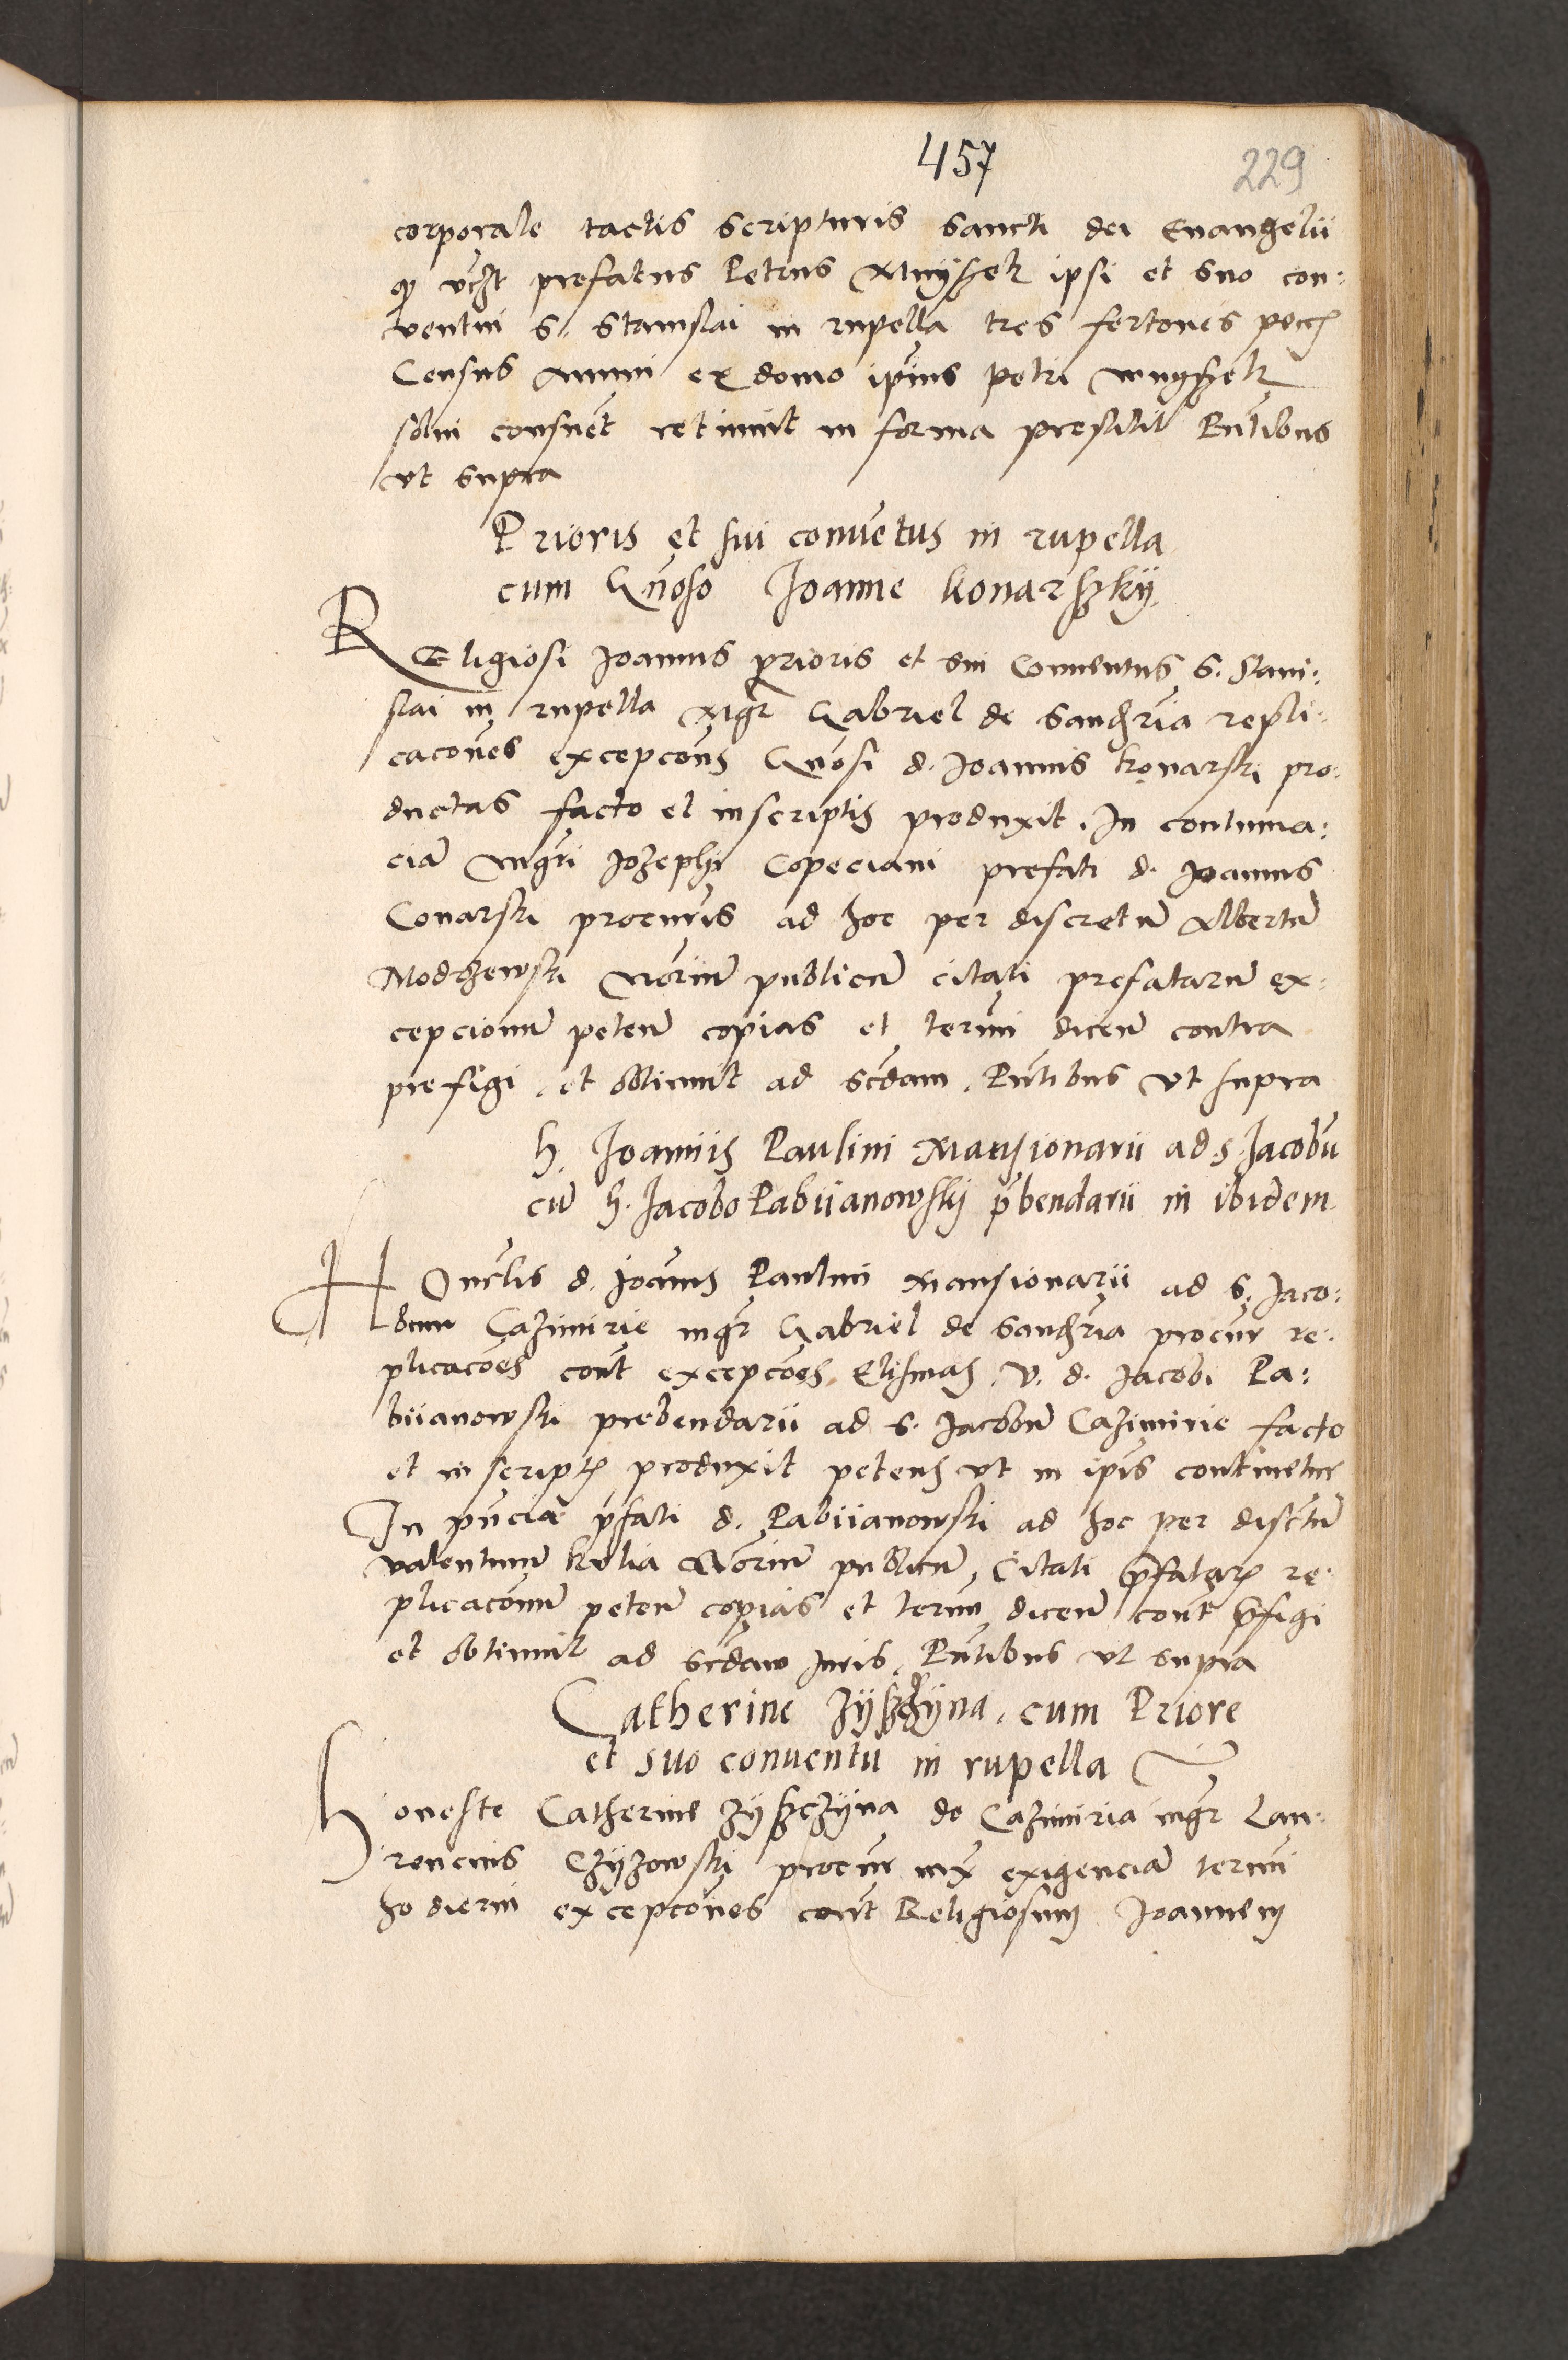 457
229
corporale tactis scripturis sancti dei Euangelii
prefatus Petrus ipsi et suo con:
ventui S. Stanislai in rupella tres fertones pecc
Census annui ex domo ipius petri
solui consuet retinuit in forma prestitit Pntibus
vt supra
Prioris et sui conuetus in rupella
cum Gnoso Joanne konarszky.
Religiosi Joannis prioris et sui Conuentus S. Stani:
slai in rupella Mgr Gabriel de Sandria repli:
cacones excepcons Gnosi d. Joannis konarski pro:
ductas facto et inscriptis produxit. In contuma:
cia mgri Jozephi Copeciani prefati d. Joannis
Conarski procuris ad hoc per discretu Albertu
Modrzewski Noriu publicu citati prefataru ex:
cepcionu peten copias et termi dicen contra
prefigi. et obtinuit ad scdam. Pntibus vt supra
h. Joannis Paulini Mansionarii ad. s. Jacobu
cu h. Jacobo Pabiianowskij pbendarii in ibidem
Honclis d. Joanis Paulini mansionarii ad S. Jaco:
bum Cazimirie mgr Gabriel de Sandria procur re:
plicacoes cont excepcoes V. d. Jacobi Pa:
biianowski prebendarii ad S. Jacobu Cazimirie facto
et in script produxit petens vt in ipis continetur
In pncia pfati d. Pabiianowski ad hoc per disctu
valentinum Noriu publicu Citati pfatar re:
plicaconu peten copias et termi dicen cont pfigi
et obtinuit ad scdam Juris. Pntibus vt supra
Catherine Zyszczyna. cum Priore
et suo conuentu in rupella
honeste Catherine Zyszczyna de Cazimiria mgr Lau:
rencius Czyzowski procur iux exigencia termi
hodierni excepcones cont Religiosum Joannem